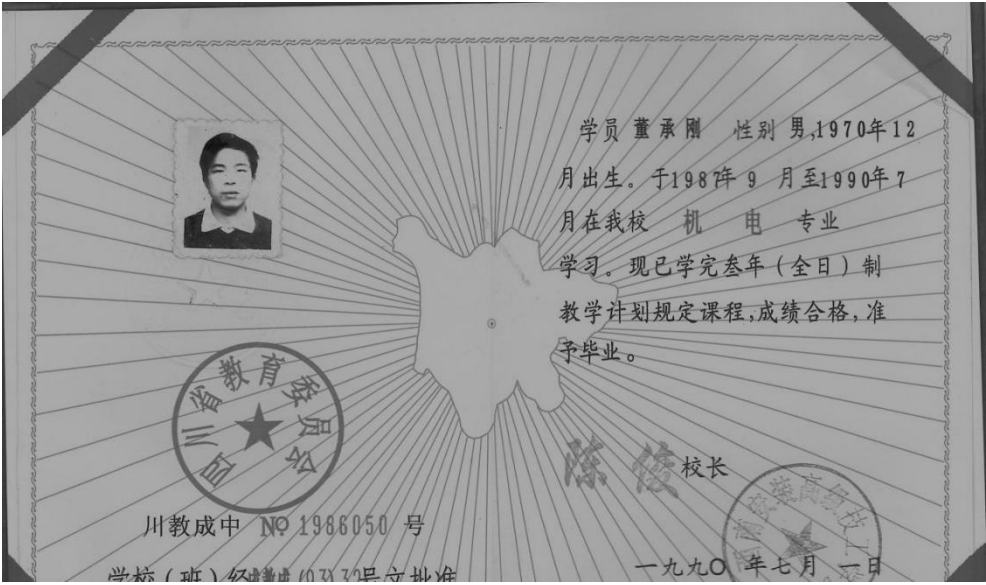 学员 董承刚 性别 男,1970年12
月出生。于1987年 9 月至1990年7
月在我校 机 电 专业
学习。现已学完叁年(全日)制
教学计划规定课程,成绩合格,准
予毕业。
四川省教育委员会
陈俊 校长
川教成中 NO 1986050 号
学校(班)经 (93)32号文批准
高级技工
一九九〇年七月一日